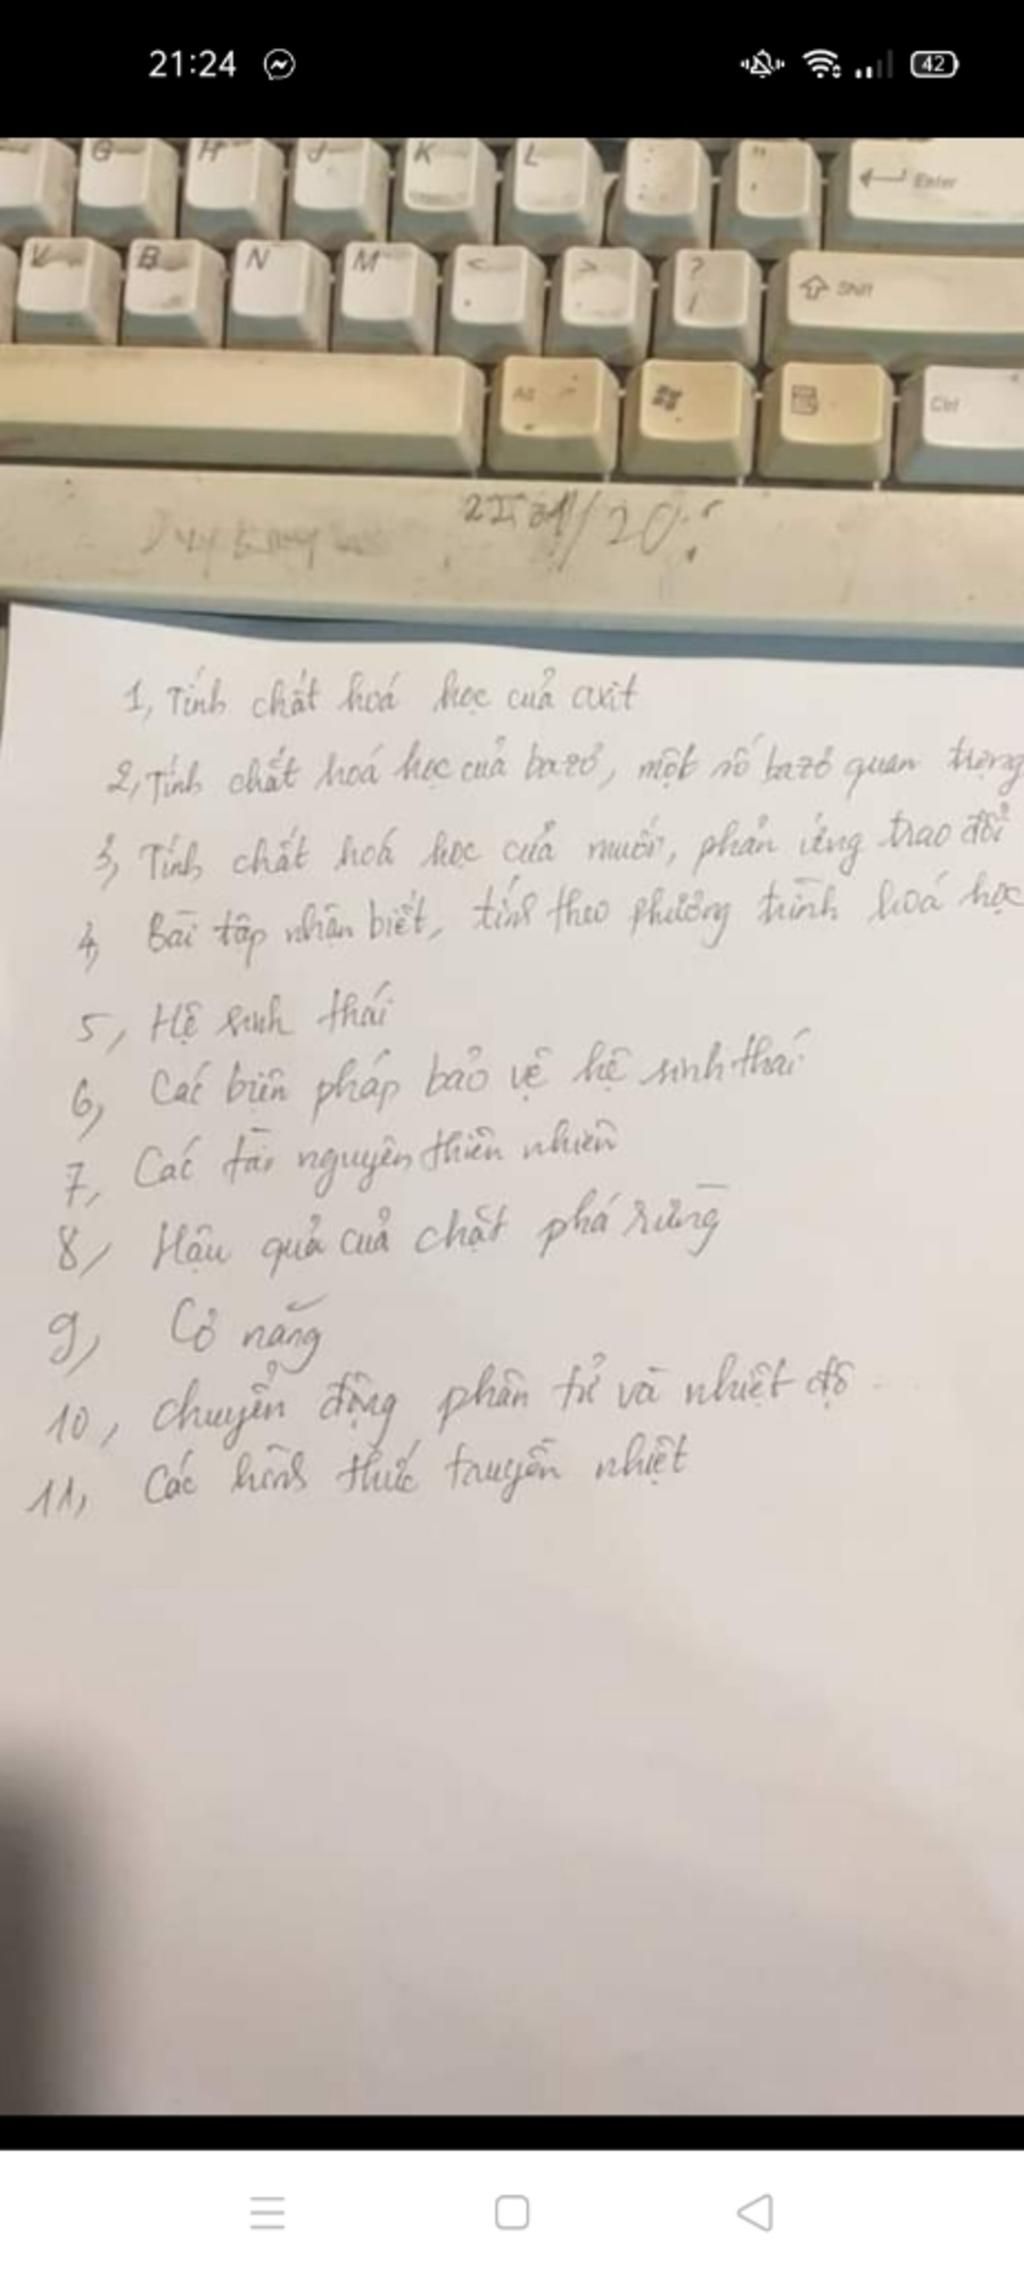 21:24
42
G H J K L : ; " ' Enter
V B N M < , > . ? / Shift
Alt Ctrl
1, Tính chất hoá học của axit
2, Tính chất hoá học của bazơ, một số bazơ quan trọng
3, Tính chất hoá học của muối, phản ứng trao đổi
4, Bài tập nhận biết, tính theo phương trình hoá học
5, Hệ sinh thái
6, Các biện pháp bảo vệ hệ sinh thái
7, Các tài nguyên thiên nhiên
8, Hậu quả của chặt phá rừng
9, Cơ năng
10, Chuyển động phân tử và nhiệt độ
11, Các hình thức truyền nhiệt